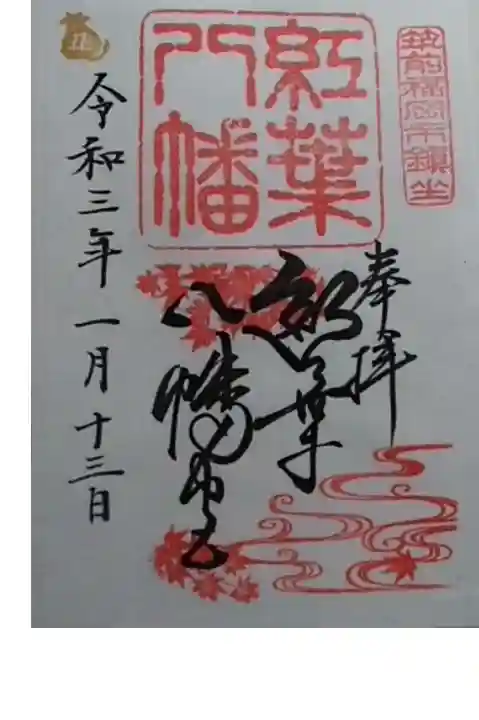 筑前福岡市鎮坐
紅葉
八幡
奉拝
紅葉
八幡宮
丑
令和三年一月十三日